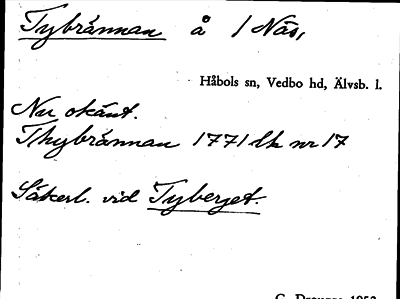 Tybrännan å 1 Näs,
Håbols sn, Vedbo hd, Älvsb. l.
Nu okänt.
Thybrännan 1771 lk nr 17
Säkerl. vid Tyberget.